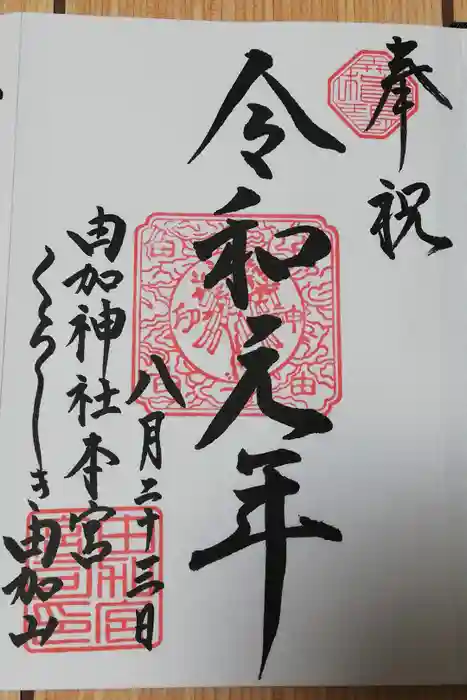 奉祝
令和元年
八月二十三日
由加神社本宮
くらしき由加山